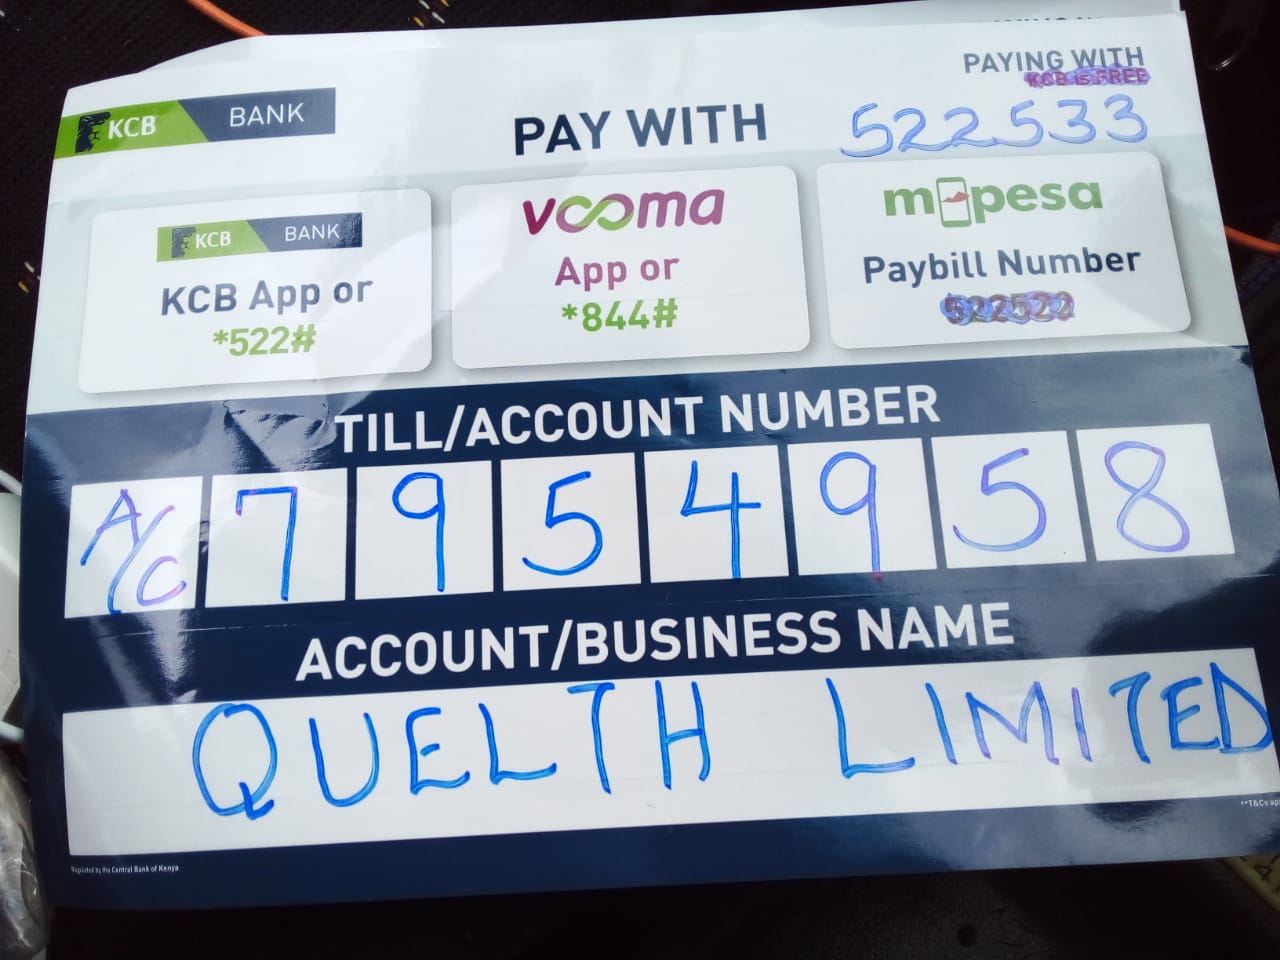 PAYING WITH
KCB is FREE
KCB BANK
PAY WITH
522533
KCB BANK
KCB App or
*522#
vooma
App or
*844#
m-pesa
Paybill Number
522522
TILL/ACCOUNT NUMBER
A/C 7 9 5 4 9 5 8
ACCOUNT/BUSINESS NAME
QUELTH LIMITED
**T&Cs
Regulated by the Central Bank of Kenya